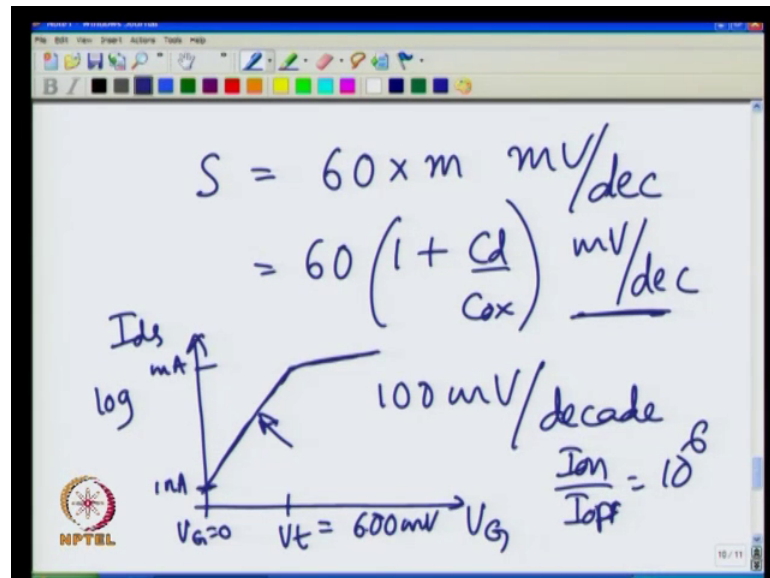 Note1 - Windows Journal
File Edit View Insert Actions Tools Help
S = 60 x m mV/dec
= 60 (1 + Cd/Cox) mV/dec
Ids
log
mA
1nA
VG=0
Vt = 600mV
VG
100 mV/decade
Ion/Ioff = 10^6
NPTEL
10 / 11